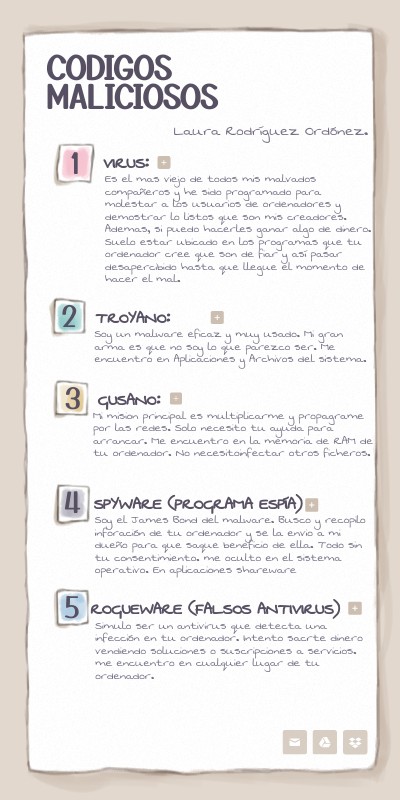 CODIGOS
MALICIOSOS
Laura Rodríguez Ordónez.
1 VIRUS:
Es el mas viejo de todos mis malvados
compañeros y he sido programado para
molestar a los usuarios de ordenadores y
demostrar lo listos que son mis creadores.
Además, si puedo hacerles ganar algo de dinero.
Suelo estar ubicado en los programas que tu
ordenador cree que son de fiar y así pasar
desapercibido hasta que llegue el momento de
hacer el mal.
2 TROYANO:
Soy un malware eficaz y muy usado. Mi gran
arma es que no soy lo que parezco ser. Me
encuentro en Aplicaciones y Archivos del sistema.
3 GUSANO:
Mi mision principal es multiplicarme y propagrame
por las redes. Solo necesito tu ayuda para
arrancar. Me encuentro en la memoria de RAM de
tu ordenador. No necesitoinfectar otros ficheros.
4 SPYWARE (PROGRAMA ESPÍA)
Soy el James Bond del malware. Busco y recopilo
inforación de tu ordenador y se la envio a mi
dueño para que saque beneficio de ella. Todo sin
tu consentimiento. me oculto en el sistema
operativo. En aplicaciones shareware
5 ROGUEWARE (FALSOS ANTIVIRUS)
Simulo ser un antivirus que detecta una
infección en tu ordenador. Intento sacrte dinero
vendiendo soluciones o suscripciones a servicios.
me encuentro en cualquier lugar de tu
ordenador.